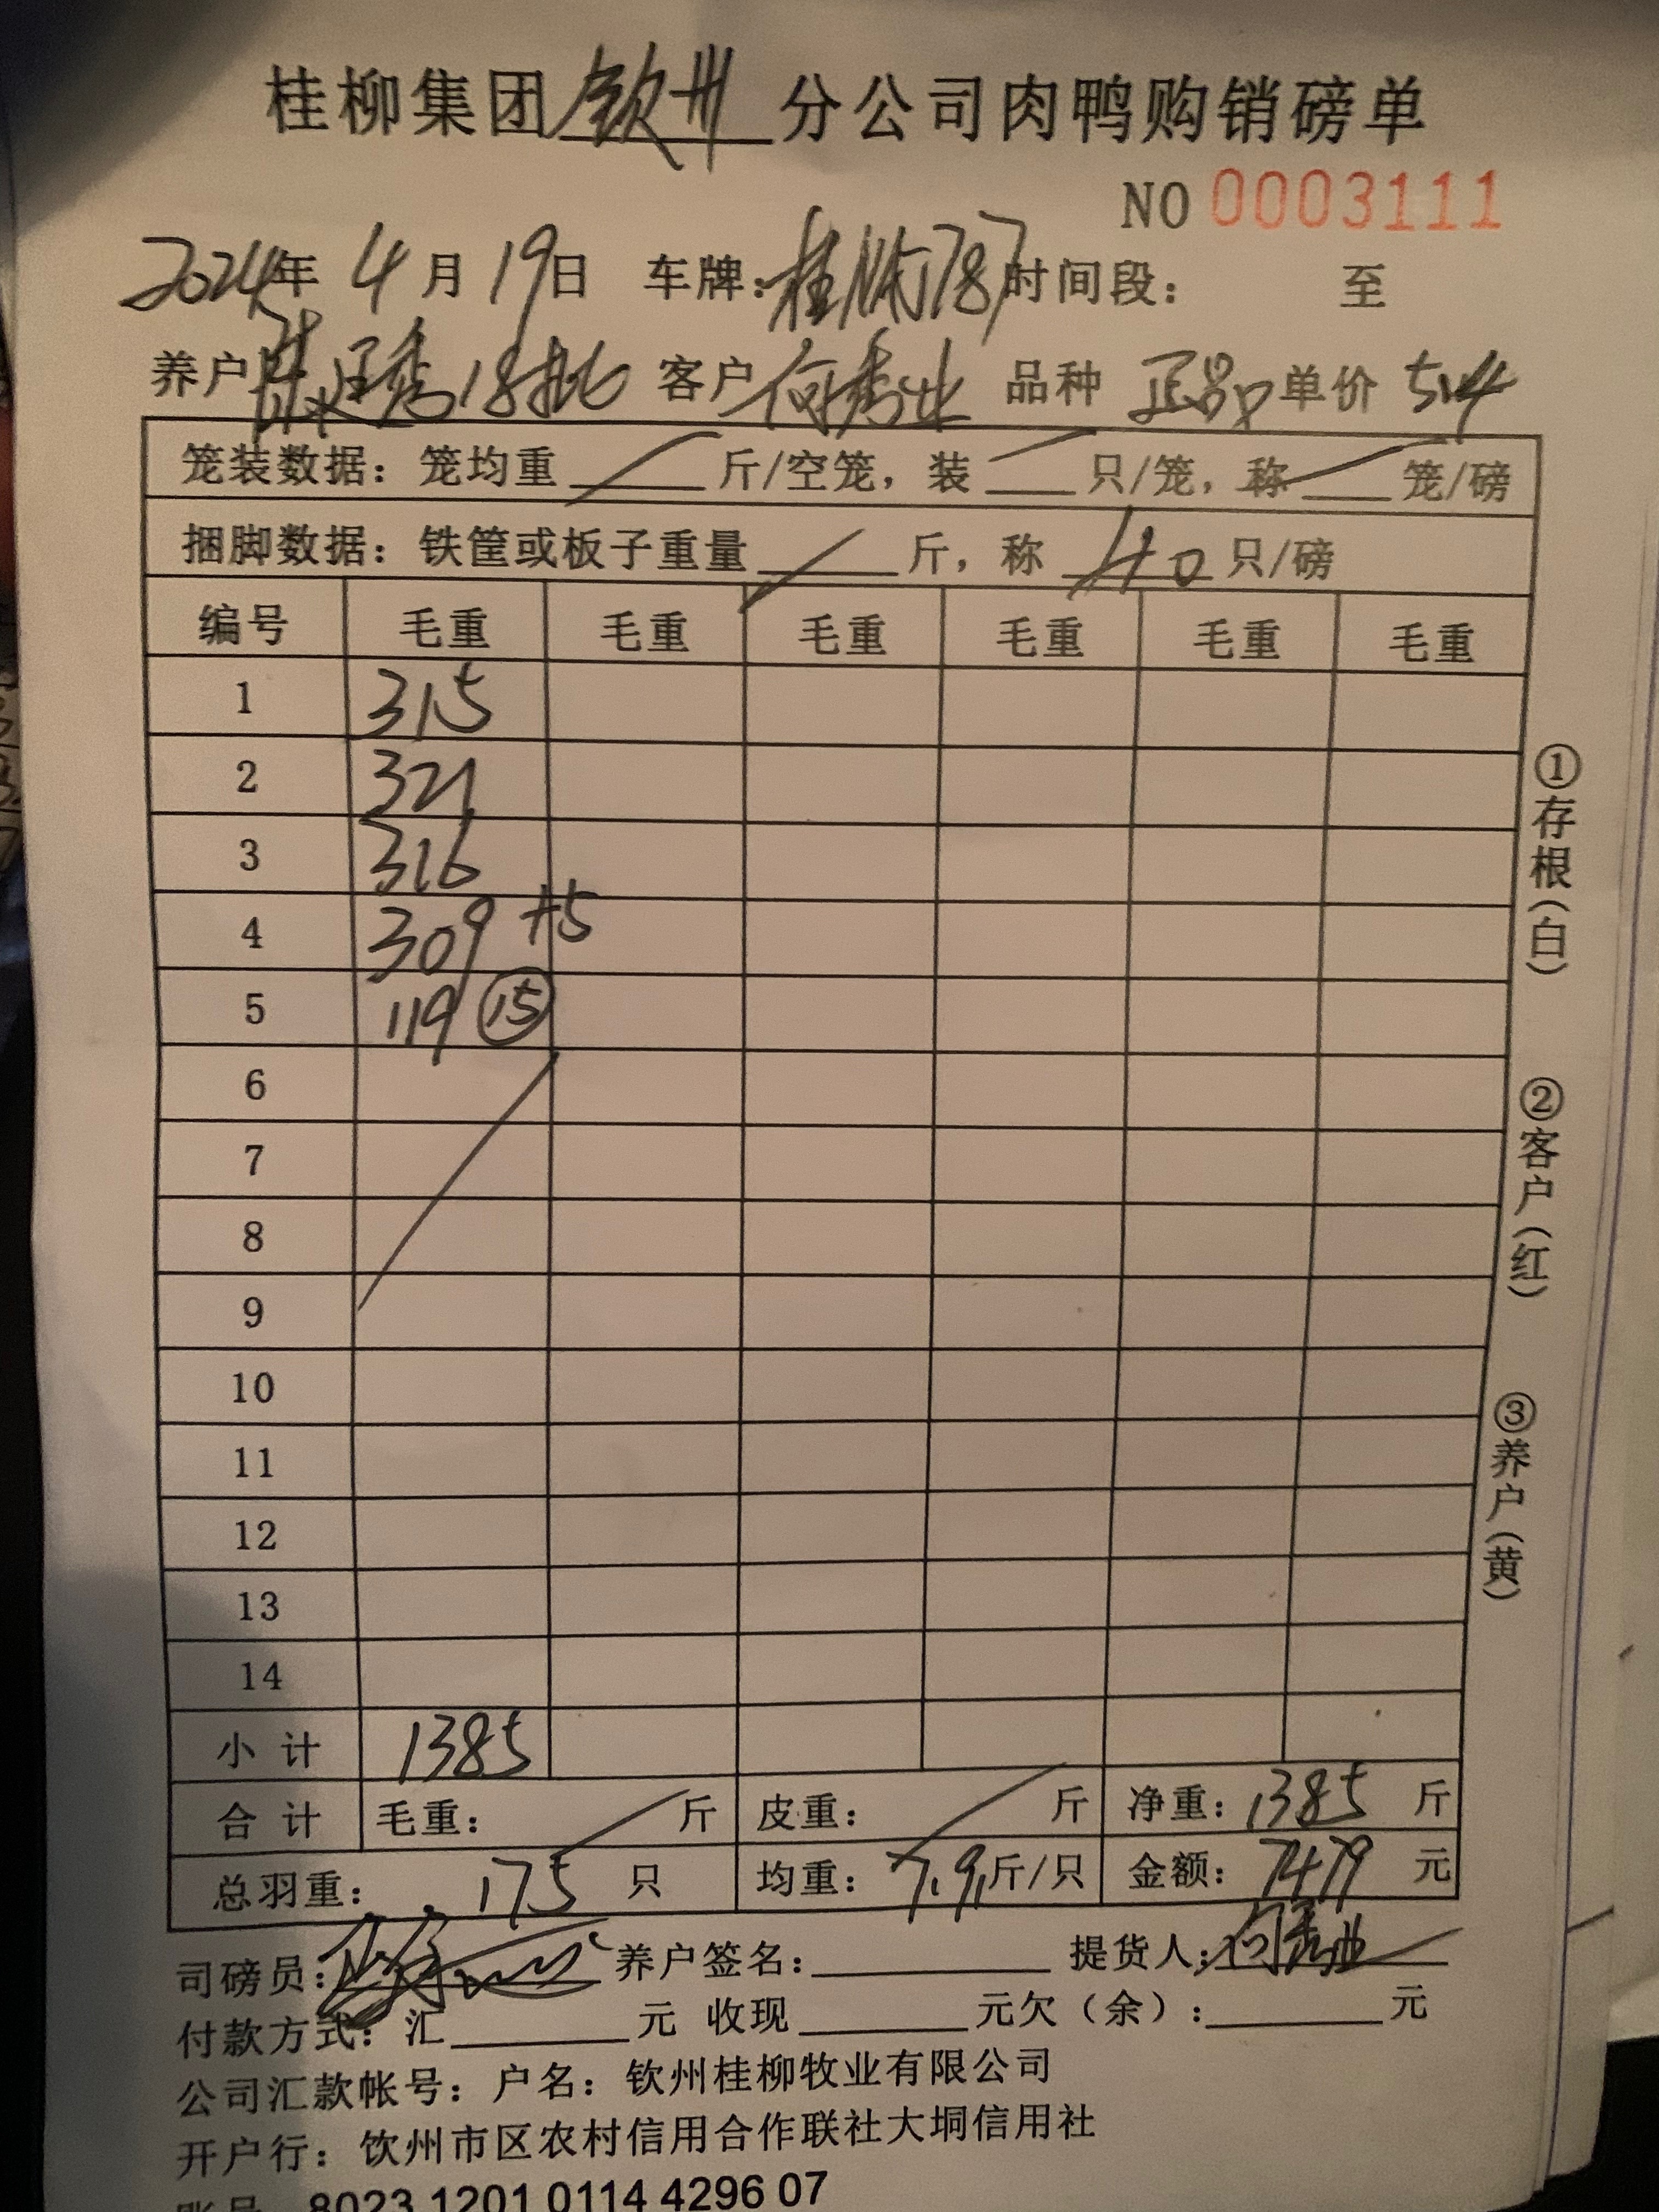 桂柳集团钦州分公司肉鸭购销磅单
NO 0003111
2024年 4月 19日 车牌:桂 787 时间段: 至
养户 秀18批 客户 何秀业 品种 正品 单价 5.4
笼装数据:笼均重 斤/空笼,装 只/笼,称 笼/磅
捆脚数据:铁筐或板子重量 斤,称 40 只/磅
编号 毛重 毛重 毛重 毛重 毛重 毛重
1 315
2 321
3 316
4 309 +5
5 119 ⑮
6
7
8
9
10
11
12
13
14
小计 1385
合计 毛重: 斤 皮重: 斤 净重:1385 斤
总羽重: 175 只 均重:7.91斤/只 金额:7479 元
司磅员: 养户签名: 提货人:何秀业
付款方式:汇 元 收现 元欠(余): 元
公司汇款帐号:户名:钦州桂柳牧业有限公司
开户行:钦州市区农村信用合作联社大垌信用社
账号 8023 1201 0114 4296 07
①存根(白)
②客户(红)
③养户(黄)